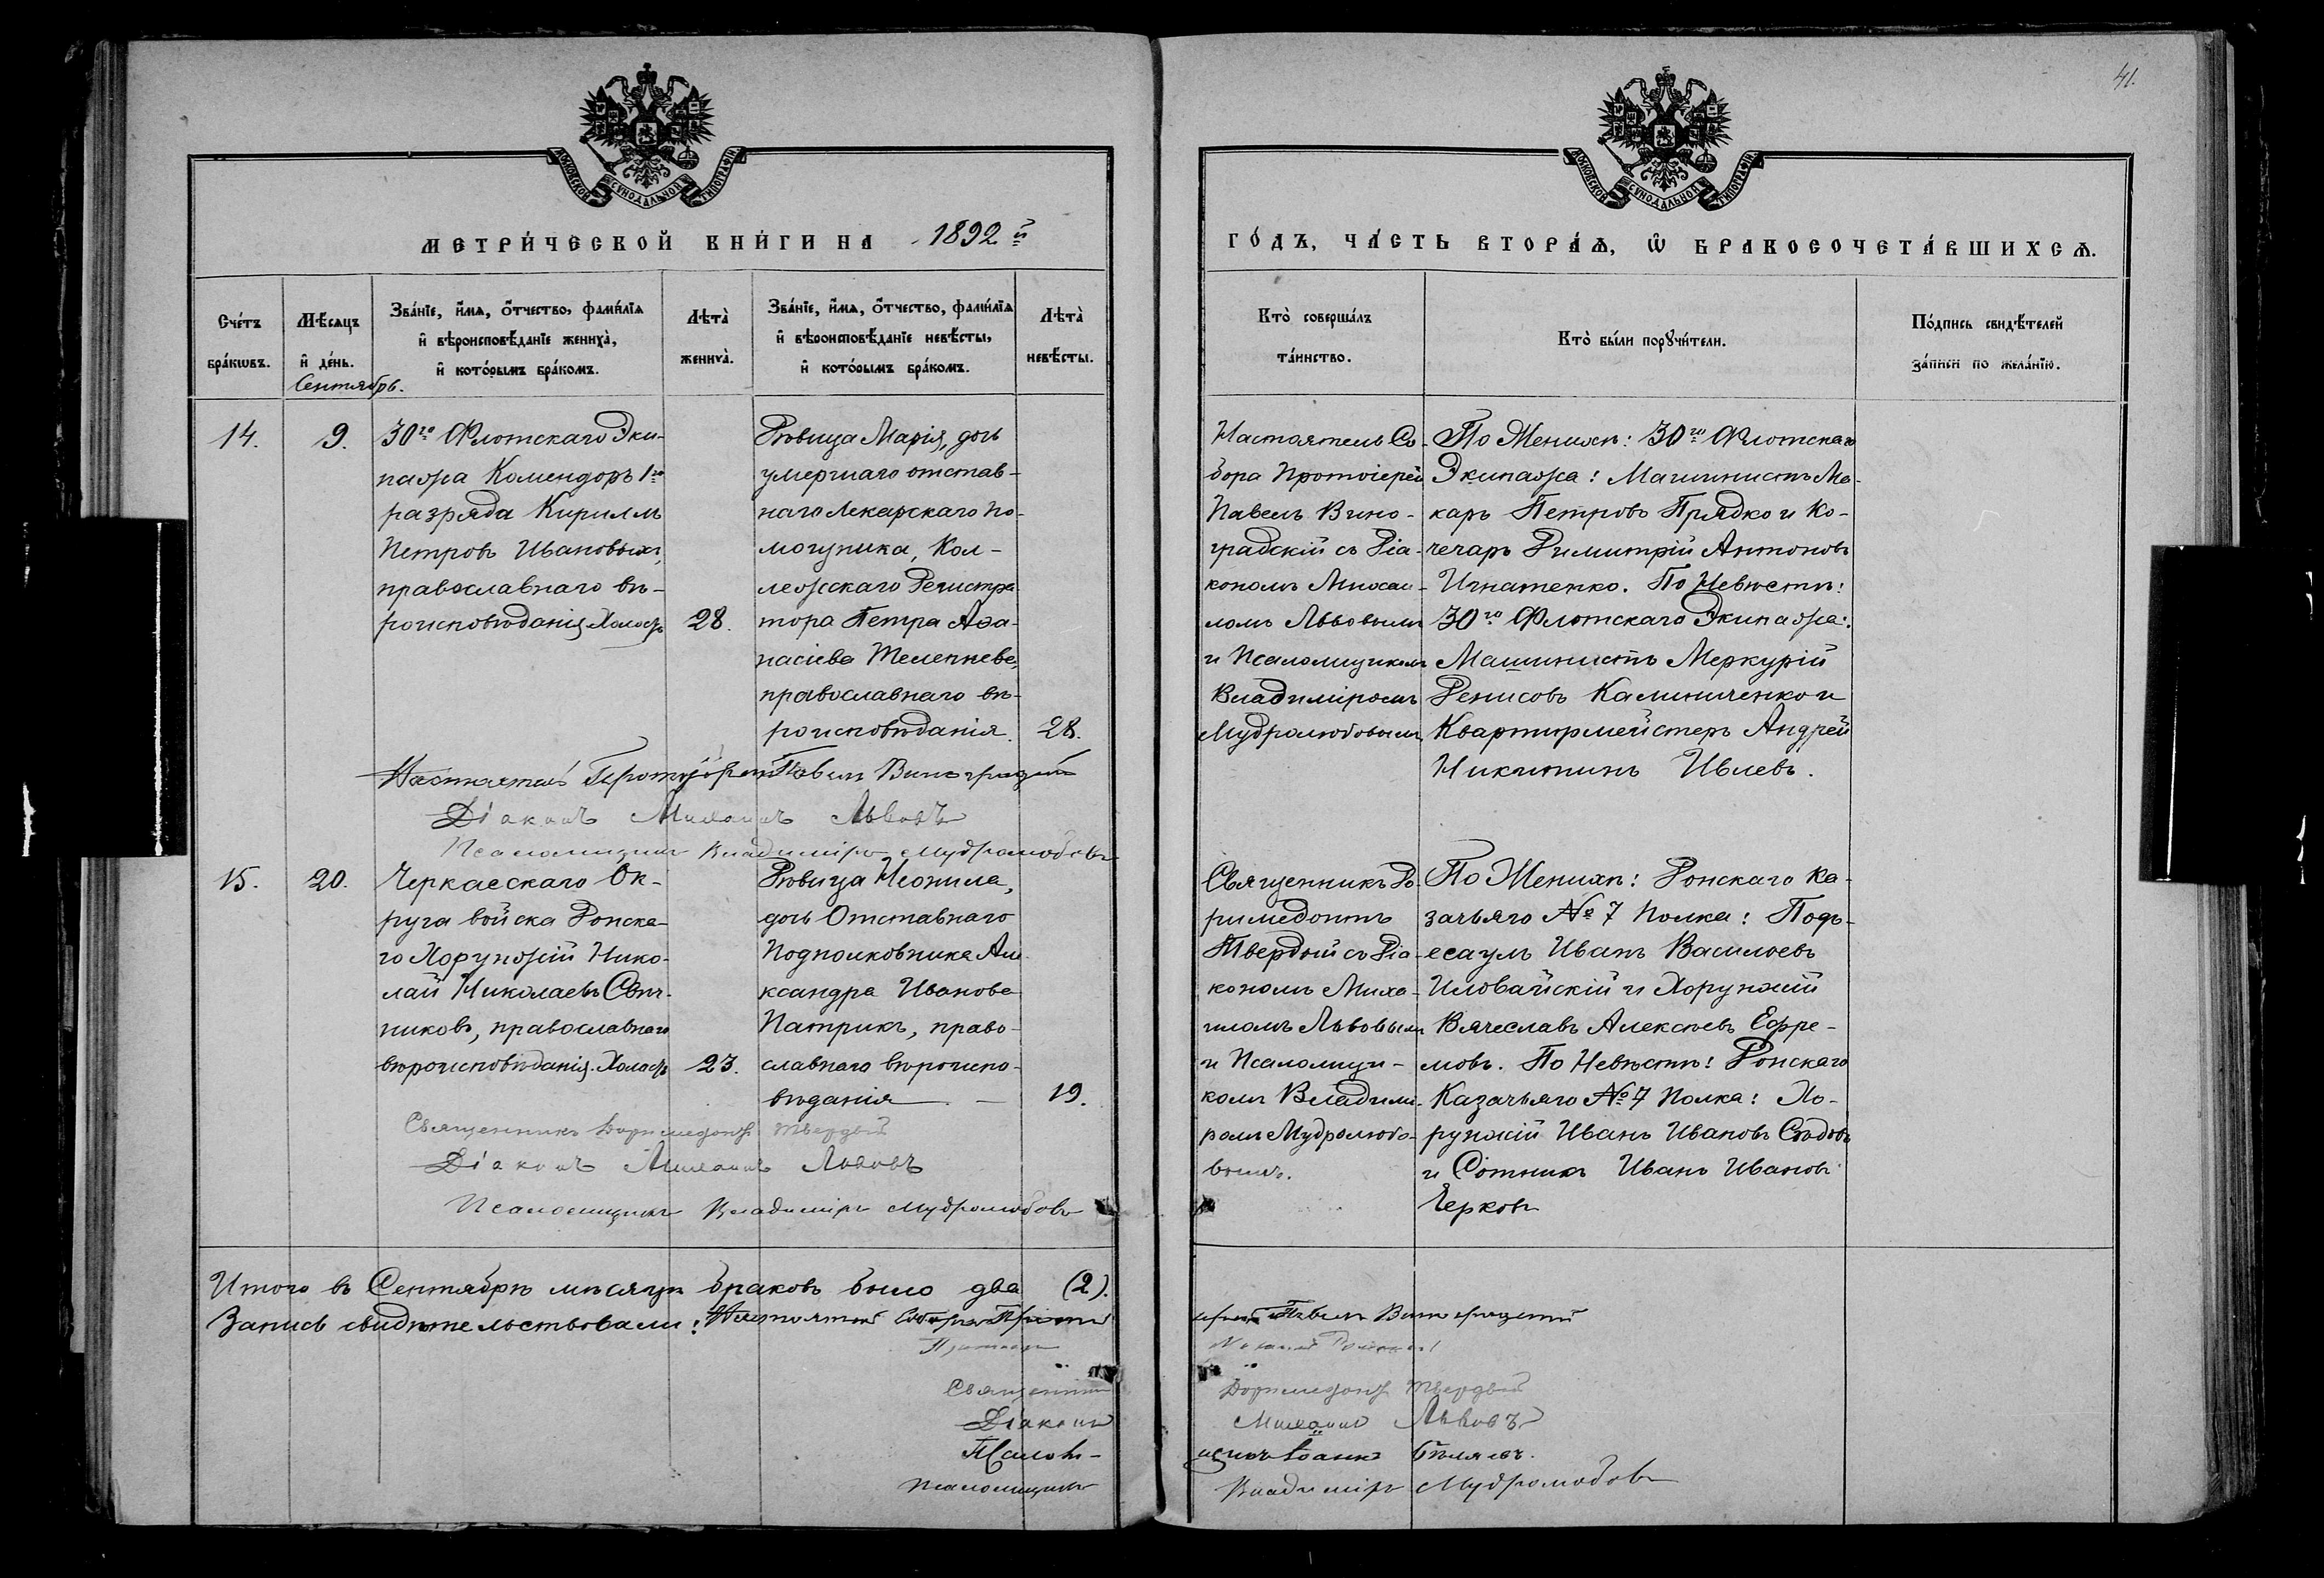 41.
МОСКОВСКОЙ СѴНОДАЛЬНОЙ ТИПОГРАФІИ
МОСКОВСКОЙ СѴНОДАЛЬНОЙ ТИПОГРАФІИ
МЕТРИ́ЧЕСКОЙ КНИ́ГИ НА 1892 й
ГО́ДЪ, ЧА́СТЬ ВТОРА́Ѧ, Ѡ҆ БРАКОСОЧЕТА́ВШИХСѦ.
Сче́тъ
бра́кѡвъ.
Мѣ́сяцъ
и҆ де́нь.
Сентябрь.
Зва́нїе, и҆́мѧ, ѻ҆́тчество, фами́лїѧ
и҆ вѣроисповѣ́данїе жениха̀,
и҆ кото́рымъ бра́комъ.
Лѣта̀
жениха̀.
Зва́нїе, и҆́мѧ, ѻ҆́тчество, фами́лїѧ
и҆ вѣроисповѣ́данїе невѣ́сты,
и҆ кото́рымъ бра́комъ.
Лѣта̀
невѣ́сты.
Кто̀ соверша́лъ
та́инство.
Кто̀ бы́ли порꙋчи́тели.
По́дпись свидѣ́телей
за́писи по жела́нїю.
14.
9.
30го Флотскаго Эки-
пажа Комендоръ 1го
разряда Кириллъ
Петровъ Ивановыхъ,
православнаго вѣ-
роисповѣданія. Холостъ
28.
Дѣвица Марія, дочь
умершаго отстав-
наго Лекарскаго по-
мощника, Кол-
лежскаго Регистра-
тора Петра Аѳа-
насіева Телепнева,
православнаго вѣ-
роисповѣданія.
28.
Настоятель Со-
бора Протоіерей
Павелъ Вино-
градскій съ Діа-
кономъ Михаи-
ломъ Львовымъ
и Псаломщикомъ
Владиміромъ
Мудролюбовымъ.
По Женихѣ: 30го Флотскаго
Экипажа: Машинистъ Ма-
каръ Петровъ Прядко и Ко-
чегаръ Димитрій Антоновъ
Игнатенко. По Невѣстѣ:
30го Флотскаго Экипажа:
Машинистъ Меркурій
Денисовъ Калиниченко и
Квартирмейстеръ Андрей
Никитинъ Ивлевъ.
Настоятель Протоіерей Павелъ Виноградскій
Діаконъ Михаилъ Львовъ
Псаломщикъ Владиміръ Мудролюбовъ
15.
20.
Черкасскаго Ок-
руга войска Донска-
го Хорунжій Нико-
лай Николаевъ Свѣч-
никовъ, православнаго
вѣроисповѣданія. Холостъ
23.
Дѣвица Неонила,
дочь Отставнаго
Подполковника Але-
ксандра Иванова
Патрикъ, право-
славнаго вѣроиспо-
вѣданія
19.
Священникъ До-
римедонтъ
Твердый съ Діа-
кономъ Миха-
иломъ Львовымъ
и Псаломщи-
комъ Владими-
ромъ Мудролюбо-
вымъ.
По Женихѣ: Донскаго Ка-
зачьяго № 7 Полка: Подъ-
есаулъ Иванъ Васильевъ
Иловайскій и Хорунжій
Вячеславъ Алексѣевъ Ефре-
мовъ. По Невѣстѣ: Донскаго
Казачьяго № 7 Полка: Хо-
рунжій Иванъ Ивановъ
и Сотникъ Иванъ Ивановъ
Черковъ
Священникъ Доримедонтъ Твердый
Діаконъ Михаилъ Львовъ
Псаломщикъ Владиміръ Мудролюбовъ
Итого въ Сентябрѣ мѣсяцѣ браковъ было два (2).
Запись свидѣтельствовали: Настоятель Собора Протоіерей Павелъ Виноградскій
Священникъ Доримедонтъ Твердый
Діаконъ Михаилъ Львовъ
Псаломщикъ Бѣляевъ.
Псаломщикъ Владиміръ Мудролюбовъ